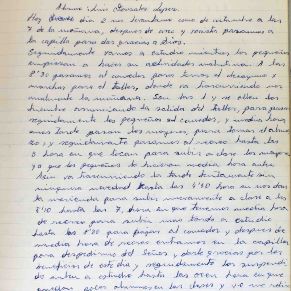 Alumno Luis Gonzalez López.
Hoy día 2 nos levantamos como de costumbre a las
7 de la mañana, despues de aseo y pasamos a
la capilla para dar gracias a Dios.
Seguidamente vamos a estudio mientras los pequeños
empiezan a hacer sus actividades. A las
8'30 pasamos al comedor para tomar el desayuno y
marchar para el taller, donde va transcurriendo
la mañana. Son las 1 y se oyen los
la salida del taller, para pasar
seguidamente los pequeños al comedor, y media hora
mas tarde pasan los mayores, para tomar el almuerzo
, y seguidamente pasamos al recreo hasta las
3 hora en que tocan para subir a clase los mayores
ya que los pequeños lo hicieron media hora antes
Asi va transcurriendo la tarde sin
ninguna novedad hasta las 4'30 hora en nos dan
la merienda para subir nuevamente a clase a las
hasta las 7, hora en que tenemos media hora
de recreo para subir mas tarde a estudio
hasta las para pasar al comedor, y despues de
media hora de recreo entramos en la capilla
para despedirnos del Señor, y darle gracias por los
beneficios de este dia, seguidamente los
a estudio hasta las once hora en que
alumnos en las clases y